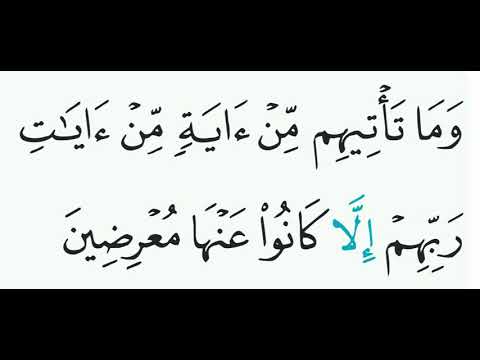 وَمَا تَأۡتِيهِم مِّنۡ ءَايَةٖ مِّنۡ ءَايَٰتِ
رَبِّهِمۡ إِلَّا كَانُواْ عَنۡهَا مُعۡرِضِينَ